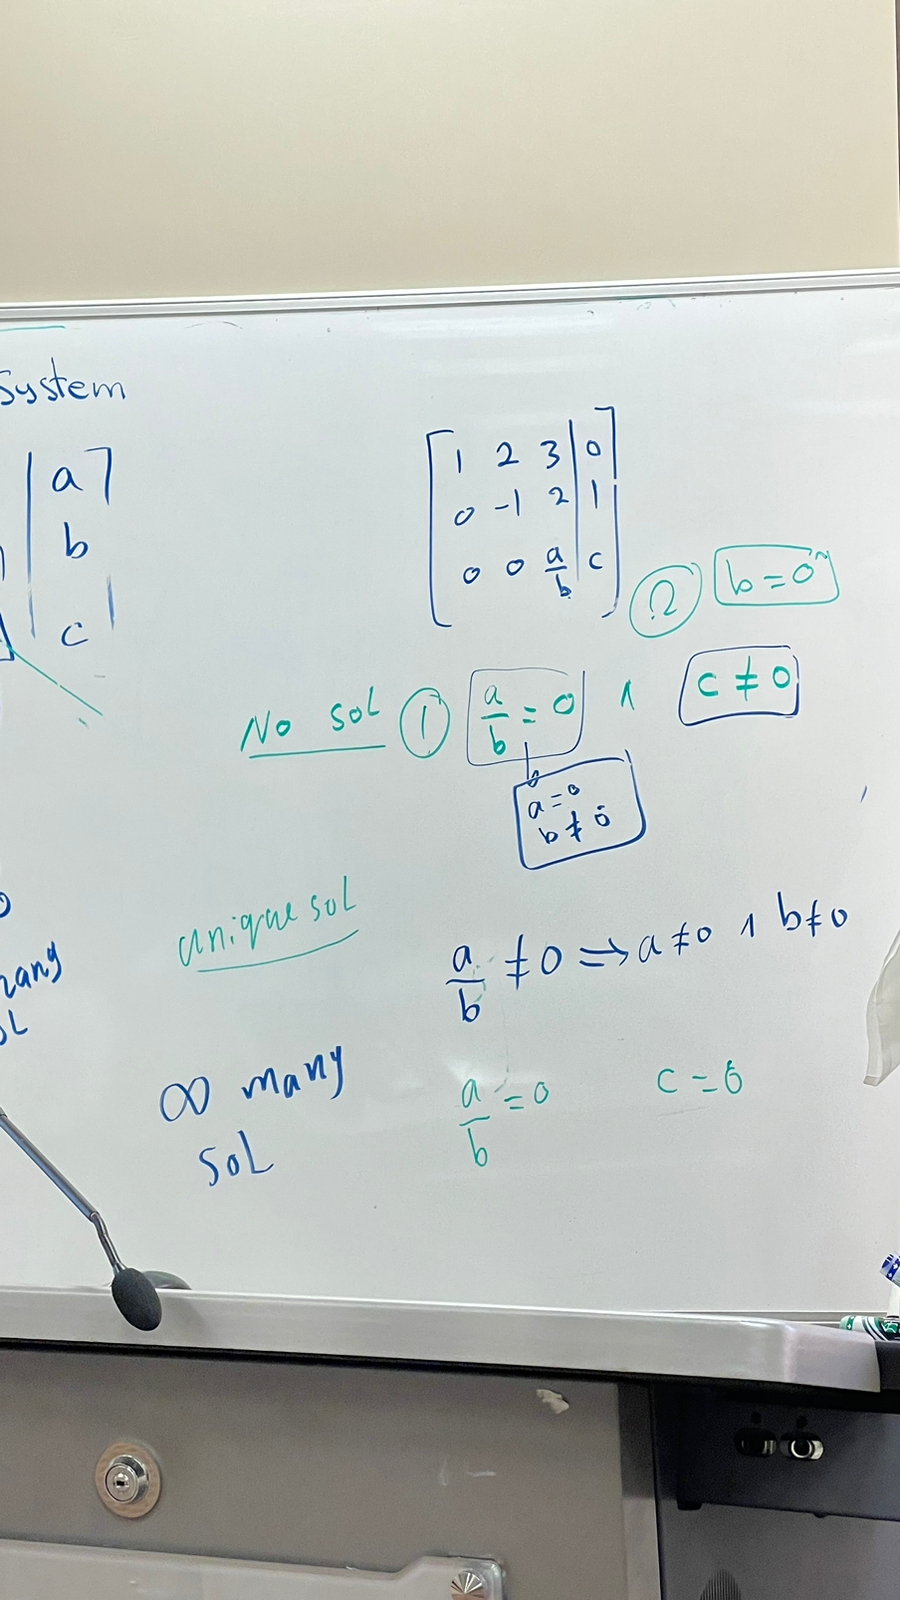 System
a
b
c
1 2 3 | 0
0 -1 2 | 1
0 0 a/b | c
② b = 0
No sol ① a/b = 0 ∧ c ≠ 0
a = 0
b ≠ 0
unique sol
a/b ≠ 0 ⇒ a ≠ 0 ∧ b ≠ 0
∞ many
sol
a/b = 0 c = 0